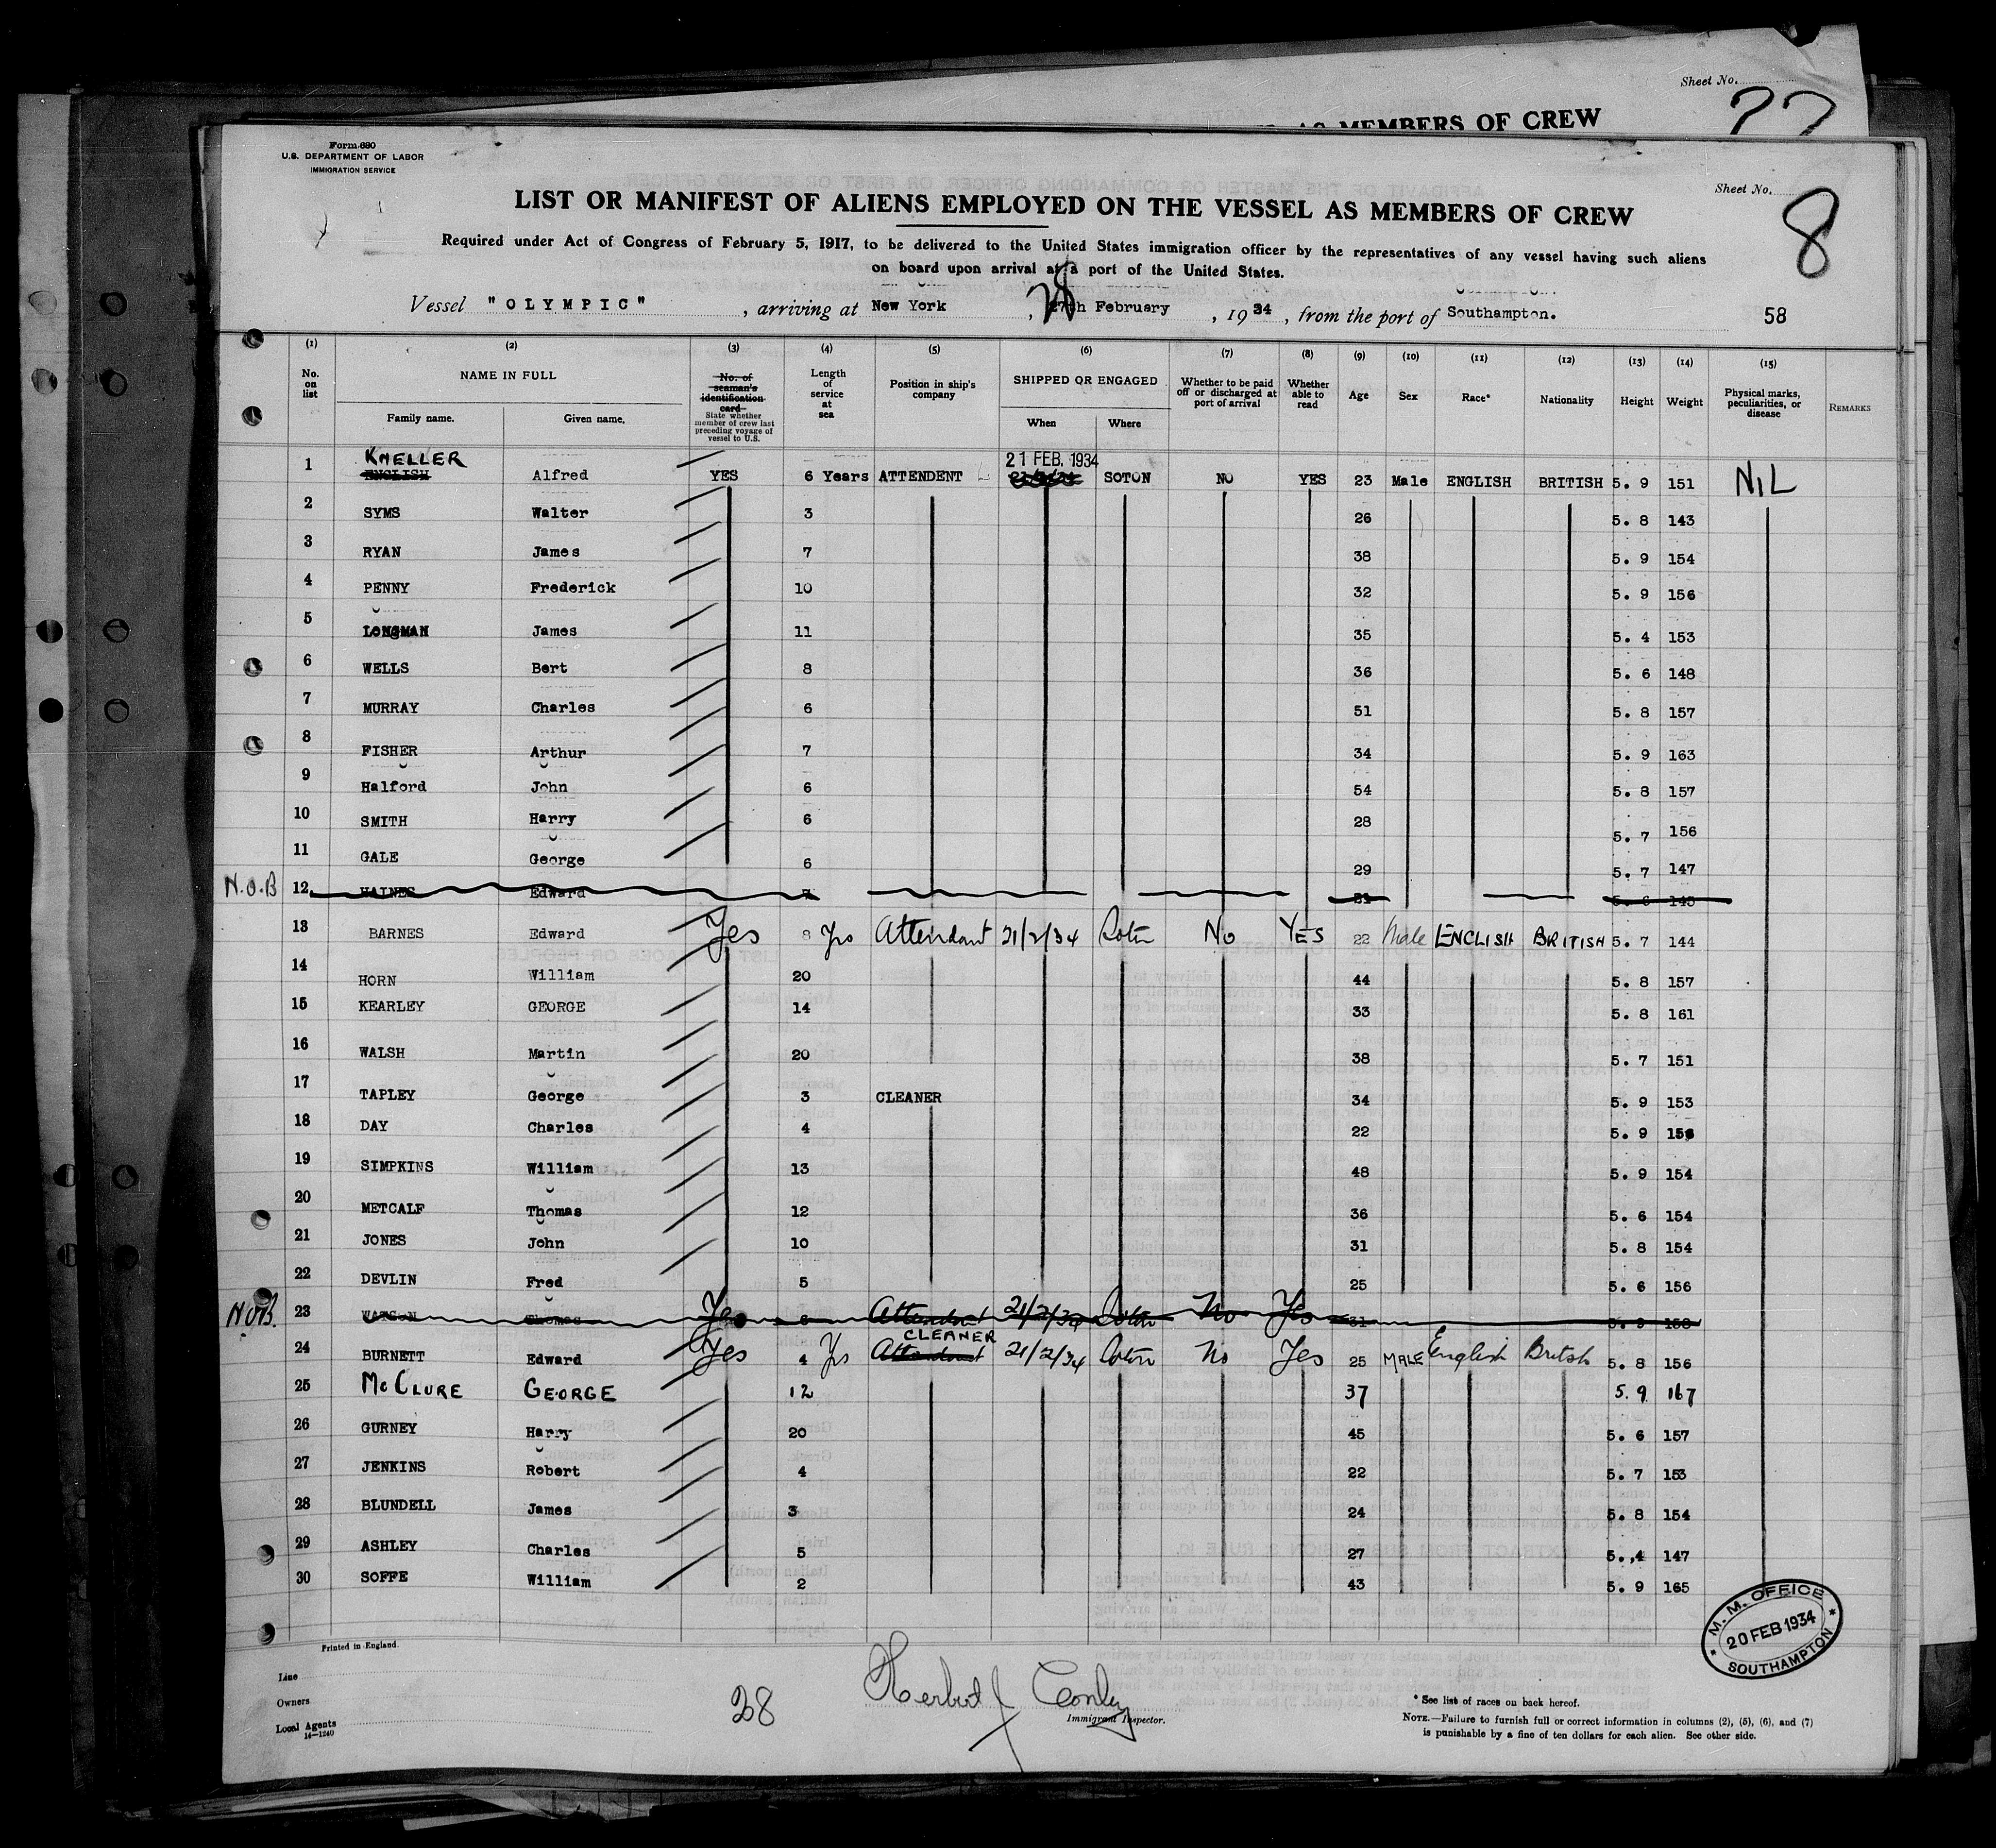 Sheet No.
AS MEMBERS OF CREW
Form 680
U.S. DEPARTMENT OF LABOR
IMMIGRATION SERVICE
Sheet No.
8
LIST OR MANIFEST OF ALIENS EMPLOYED ON THE VESSEL AS MEMBERS OF CREW
Required under Act of Congress of February 5, 1917, to be delivered to the United States immigration officer by the representatives of any vessel having such aliens
on board upon arrival at a port of the United States.
Vessel "OLYMPIC", arriving at New York, 28 27th February, 1934, from the port of Southampton.
58
(1) (2) (3) (4) (5) (6) (7) (8) (9) (10) (11) (12) (13) (14) (15)
No. on list
NAME IN FULL
Family name. Given name.
No. of seaman's identification card
State whether member of crew last preceding voyage of vessel to U.S.
Length of service at sea
Position in ship's company
SHIPPED OR ENGAGED
When Where
Whether to be paid off or discharged at port of arrival
Whether able to read
Age
Sex
Race*
Nationality
Height
Weight
Physical marks, peculiarities, or disease
REMARKS
KNELLER 21 FEB. 1934
1 ENGLISH Alfred YES 6 Years ATTENDENT SOTON NO YES 23 Male ENGLISH BRITISH 5. 9 151 NIL
2 SYMS Walter 3 26 5. 8 143
3 RYAN James 7 38 5. 9 154
4 PENNY Frederick 10 32 5. 9 156
5 LONGMAN James 11 35 5. 4 153
6 WELLS Bert 8 36 5. 6 148
7 MURRAY Charles 6 51 5. 8 157
8 FISHER Arthur 7 34 5. 9 163
9 Halford John 6 54 5. 8 157
10 SMITH Harry 6 28 5. 7 156
11 GALE George 6 29 5. 7 147
N.O.B 12 HAINES Edward 7 31 5. 6 145
13 BARNES Edward Yes 8 Yrs Attendant 21/2/34 Soton No YES 22 Male ENGLISH BRITISH 5. 7 144
14 HORN William 20 44 5. 8 157
15 KEARLEY GEORGE 14 33 5. 8 161
16 WALSH Martin 20 38 5. 7 151
17 TAPLEY George 3 CLEANER 34 5. 9 153
18 DAY Charles 4 22 5. 9
19 SIMPKINS William 13 48 5. 9 154
20 METCALF Thomas 12 36 5. 6 154
21 JONES John 10 31 5. 8 154
22 DEVLIN Fred 5 25 5. 6 156
N.O.B. 23 WATSON Thomas Yes 6 Attendant 21/2/34 Soton No Yes 31 5. 9 158
CLEANER
24 BURNETT Edward Yes 4 Yrs Attendant 21/2/34 Soton No Yes 25 MALE English British 5. 8 156
25 McCLURE GEORGE 12 37 5. 9 167
26 GURNEY Harry 20 45 5. 6 157
27 JENKINS Robert 4 22 5. 7 153
28 BLUNDELL James 3 24 5. 8 154
29 ASHLEY Charles 5 27 5. 4 147
30 SOFFE William 2 43 5. 9 165
M. M. OFFICE
20 FEB 1934
SOUTHAMPTON
Printed in England
Line
Owners
Local Agents
14—1240
28
Herbert J Conley
Immigrant Inspector.
* See list of races on back hereof.
NOTE.—Failure to furnish full or correct information in columns (2), (5), (6), and (7)
is punishable by a fine of ten dollars for each alien. See other side.